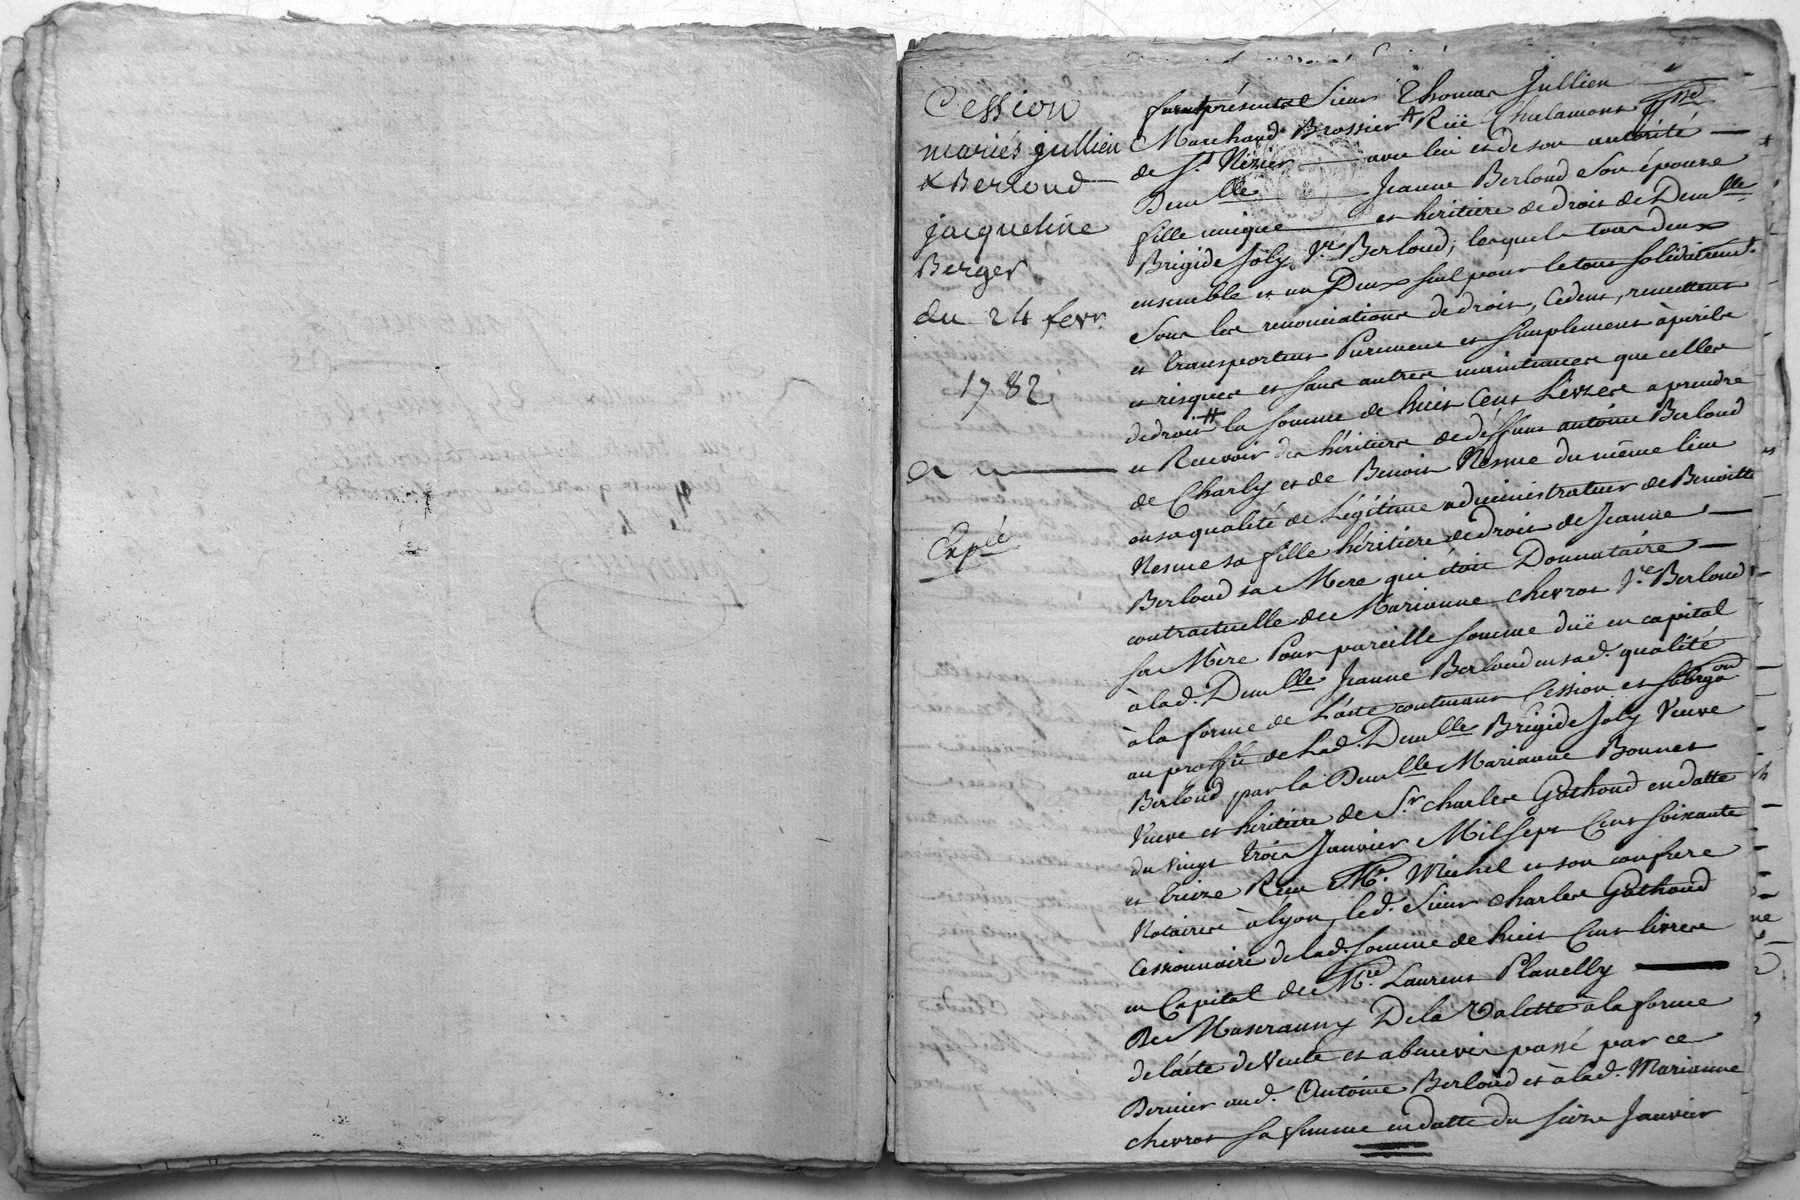 Cession
mariés jullien
& Berloud
jacqueline
Berger
du 24 fevr.
1782
Expié
furent présents Sieur Thomas Jullien
Marchand Brossier Rüe Chalamont
de St. Nizier avec lui et de son autorité
Demlle Jeanne Berloud Son épouse
fille unique et héritiere de droit de Demlle
Brigide Joly Ve Berloud, lesquels tous deux
ensemble et un Deux seul pour le tout solidairemt.
Sous les renonciations de droit, Cedent, remettent
et transportent Purement et simplement à périls
et risques et sans autres maintenues que celles
de droit la somme de huit Cent Livres a prendre
et Recevoir des héritiers de deffunt antoine Berloud
de Charly et de Benoit Nesme du même lieu
en sa qualité de Légitime administrateur de Benoitte
Nesme sa fille héritiere de Droit de Jeanne
Berloud sa Mere qui étoit Donnataire
contractuelle de Marianne Chevrot Ve Berloud
sa Mère Pour pareille somme düe en capital
à lad. Demlle Jeanne Berloud en sad. qualité
à la forme de L'acte contenant Cession et subrgaon
au proffit de Lad. Demlle Brigide Joly Veuve
Berloud par la Demlle Marianne Bonnet
Veuve et héritiere de Sr. Charles Gathoud en datte
du Vingt trois Janvier Mil Sept Cent soixante
et treize Reçu Me. Michel et son confrere
Notaires à lyon, led. Sieur Charles Gathoud
Cessionnaire de lad. somme de huit Cent livres
en Capital de Me. Laurent Planelly
De Mascranny De la Valette à la forme
de l'acte de Vente et abenevis passé par ce
Dernier aud. Antoine Berloud et à lad. Marianne
Chevrot sa femme en datte du Seize Janvier